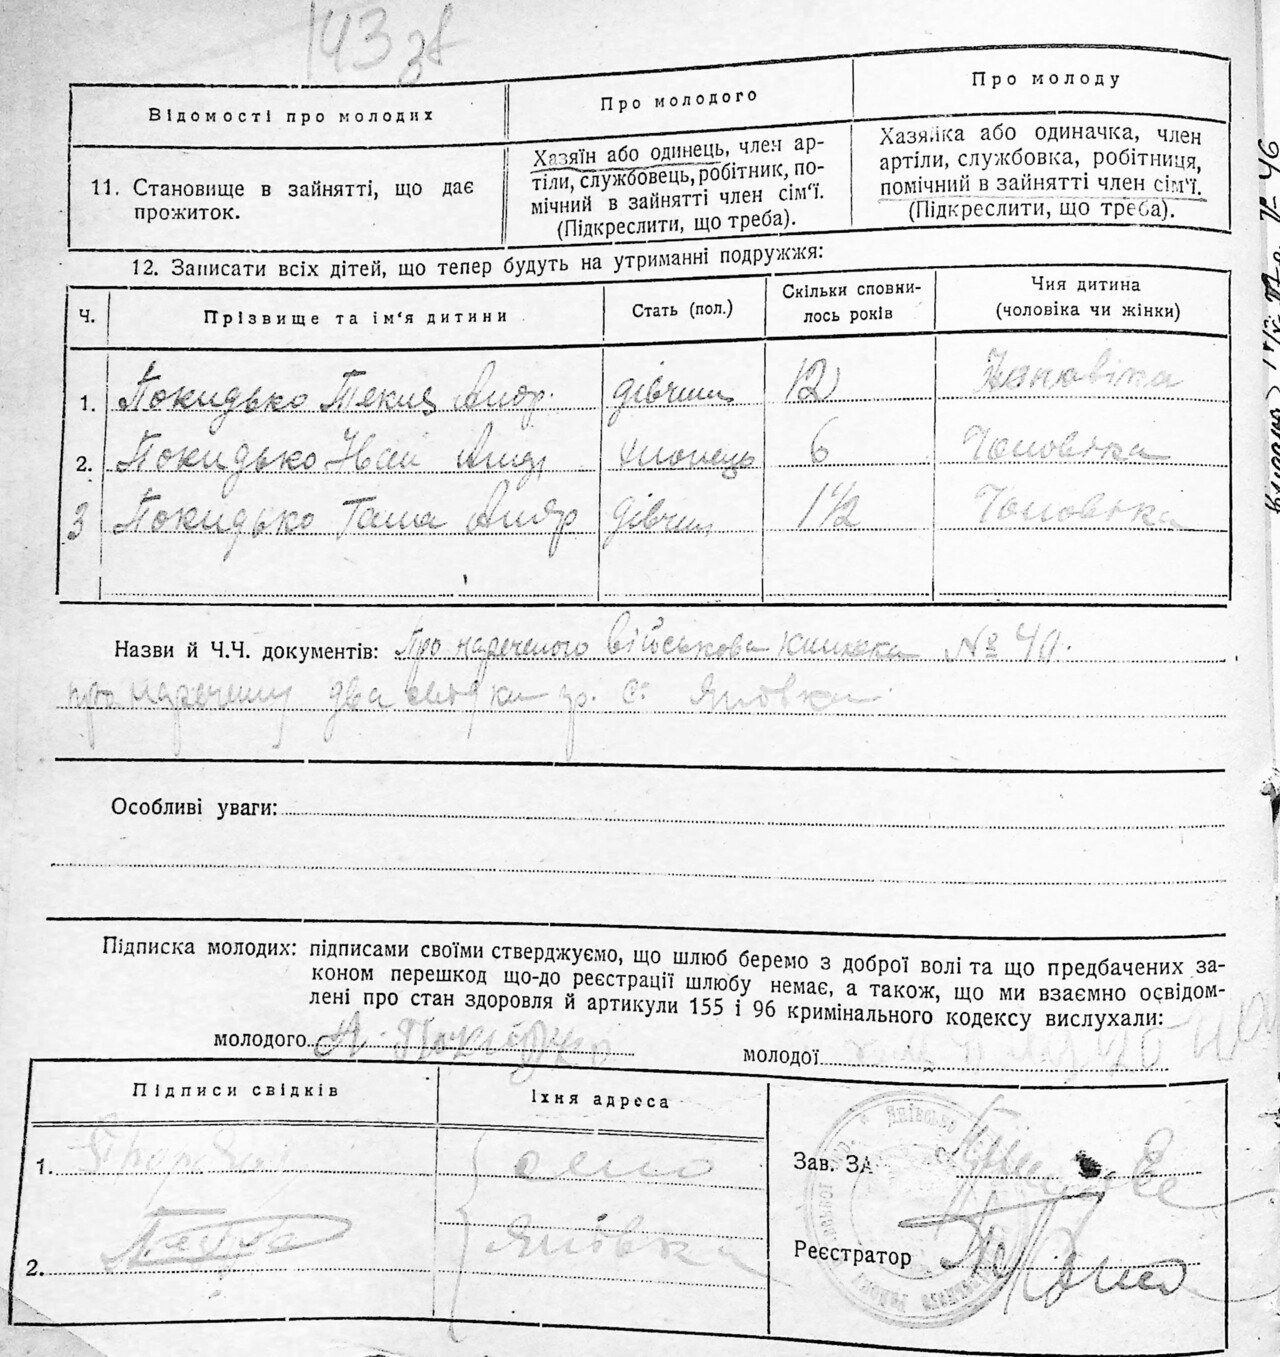 143 зв
Відомості про молодих
Про молодого
Про молоду
11. Становище в зайнятті, що дає
прожиток.
Хазяїн або одинець, член ар-
тіли, службовець, робітник, по-
мічний в зайнятті член сім'ї.
(Підкреслити, що треба).
Хазяйка або одиначка, член
артіли, службовка, робітниця,
помічний в зайнятті член сім'ї.
(Підкреслити, що треба).
12. Записати всіх дітей, що тепер будуть на утриманні подружжя:
Ч. Прізвище та ім'я дитини Стать (пол.) Скільки сповни-
лось років Чия дитина
(чоловіка чи жінки)
1. Покидько Текля Андр. дівчина 12 Чоловіка
2. Покидько Андр. хлопець 6 Чоловіка
3 Покидько Андр дівчин 1 1/2 Чоловіка
Назви й Ч.Ч. документів: Про нареченого військова книжка № 40.
про наречену два свідки гр. с. Янівка
Особливі уваги:
Підписка молодих: підписами своїми стверджуємо, що шлюб беремо з доброї волі та що предбачених за-
коном перешкод що-до реєстрації шлюбу немає, а також, що ми взаємно освідом-
лені про стан здоровля й артикули 155 і 96 кримінального кодексу вислухали:
молодого А. Покидько молодої
Підписи свідків Їхня адреса
1. село
2. Янівка
Зав. ЗА
Реєстратор